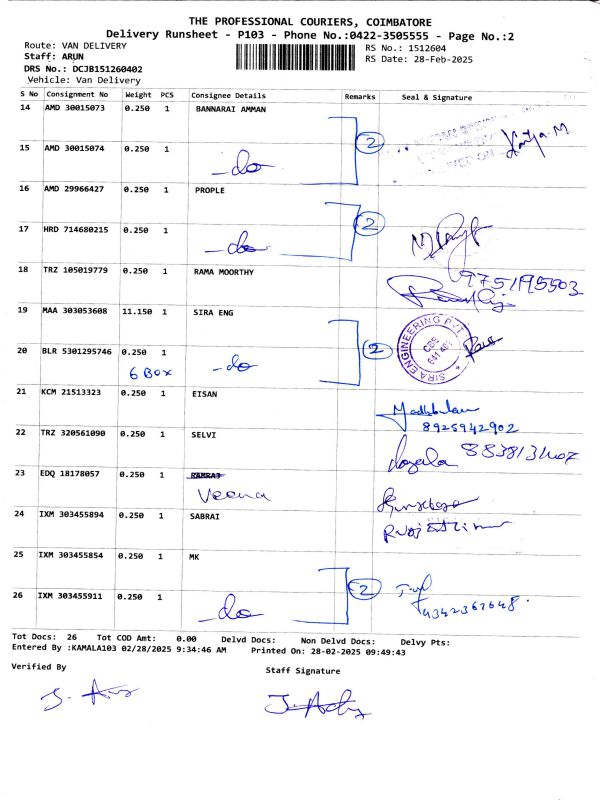 THE PROFESSIONAL COURIERS, COIMBATORE
Delivery Runsheet - P103 - Phone No.:0422-3505555 - Page No.:2
Route: VAN DELIVERY
RS No.: 1512604
Staff: ARUN
RS Date: 28-Feb-2025
DRS No.: DCJB151260402
Vehicle: Van Delivery
S No Consignment No Weight PCS Consignee Details Remarks Seal & Signature
14 AMD 30015073 0.250 1 BANNARAI AMMAN
2
15 AMD 30015074 0.250 1
-do
16 AMD 29966427 0.250 1 PROPLE
2
17 HRD 714680215 0.250 1
-do-
18 TRZ 105019779 0.250 1 RAMA MOORTHY
9751195503
19 MAA 303053608 11.150 1 SIRA ENG
SIRA ENGINEERING PVT
CBE
2
20 BLR 5301295746 0.250 1
6 BOX -do
21 KCM 21513323 0.250 1 EISAN
8925942902
22 TRZ 320561090 0.250 1 SELVI
23 EDQ 18178057 0.250 1 RAMRAJ
Veena
24 IXM 303455894 0.250 1 SABRAI
25 IXM 303455854 0.250 1 MK
2
26 IXM 303455911 0.250 1
-do
9342367648.
Tot Docs: 26 Tot COD Amt: 0.00 Delvd Docs: Non Delvd Docs: Delvy Pts:
Entered By :KAMALA103 02/28/2025 9:34:46 AM Printed On: 28-02-2025 09:49:43
Verified By
Staff Signature